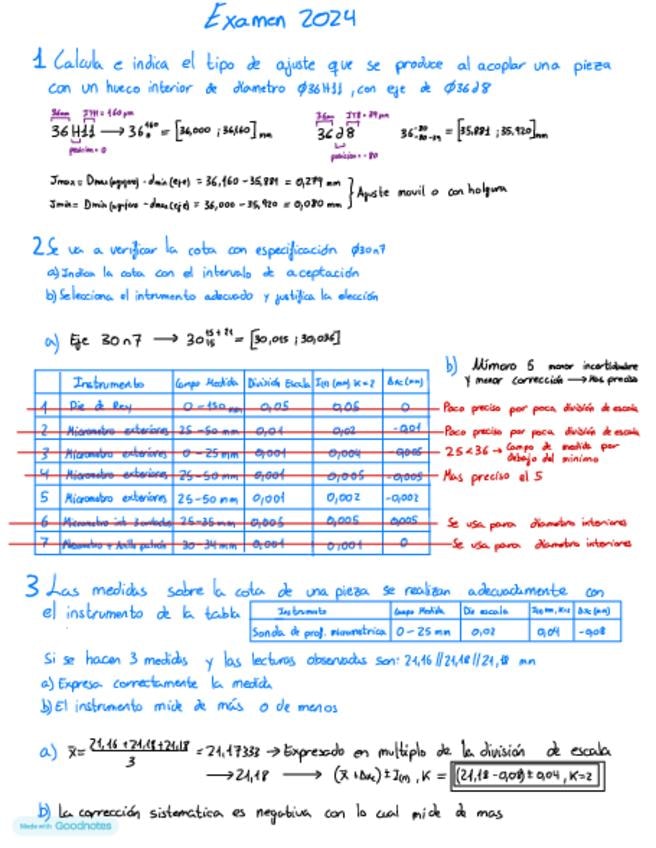 Examen 2024
1 Calcula e indica el tipo de ajuste que se produce al acoplar una pieza
con un hueco interior de diametro ϕ36H11, con eje de ϕ36d8
36mm IT11 = 160 μm
36H11 → 36 +160 0 = [36,000 ; 36,160] mm
posicion = 0
36mm IT8 = 39 μm
36d8 36 -80 -80-39 = [35,881 ; 35,920] mm
posicion = -80
Jmax = Dmax (agujero) - dmin (eje) = 36,160 - 35,881 = 0,279 mm
Jmin = Dmin (agujero - dmax (eje) = 36,000 - 35,920 = 0,080 mm
} Ajuste movil o con holgura
2 Se va a verificar la cota con especificación ϕ30n7
a) Indica la cota con el intervalo de aceptación
b) Selecciona el intrumento adecuado y justifica la elección
a) Eje 30n7 → 30 15+21 15 = [30,015 ; 30,036]
Instrumento Campo Medida División Escala I(m) (mm) K=2 Δxc (mm)
1 Pie de Rey 0-150 mm 0,05 0,05 0
2 Micrometro exteriores 25-50 mm 0,01 0,02 -0,01
3 Micrometro exteriores 0-25 mm 0,001 0,004 -0,005
4 Micrometro exteriores 25-50 mm 0,001 0,005 -0,005
5 Micrometro exteriores 25-50 mm 0,001 0,002 -0,002
6 Micrometro int 3 contactos 25-35 mm 0,005 0,005 0,005
7 + Anillo patrón 30-34 mm 0,001 0,001 0
b) Mimoro 5 menor incertidumbre
y menor corrección → Mas preciso
Poco preciso por poca división de escala
Poco preciso por poca división de escala
25<36 → Campo de medida por
debajo del minimo
Mas preciso el 5
Se usa para diametros interiores
Se usa para diametros interiores
3 Las medidas sobre la cota de una pieza se realizan adecuadamente con
el instrumento de la tabla
Instrumento Campo Medida Div escala I(m) mm, K=2 Δxc (mm)
Sonda de prof. micrometrica 0-25 mm 0,02 0,04 -0,08
Si se hacen 3 medidas y las lecturas observadas son: 21,16 // 21,18 // 21,18 mm
a) Expresa correctamente la medida
b) El instrumento mide de más o de menos
a) x̄ = 21,16 + 21,18 + 21,18 / 3 = 21,17333 → Expresado en multiplo de la división de escala
→ 21,18 → (x̄ + Δxc) ± I(m), K = (21,18 - 0,08) ± 0,04, K=2
b) La corrección sistematica es negativa con lo cual mide de mas
Made with Goodnotes